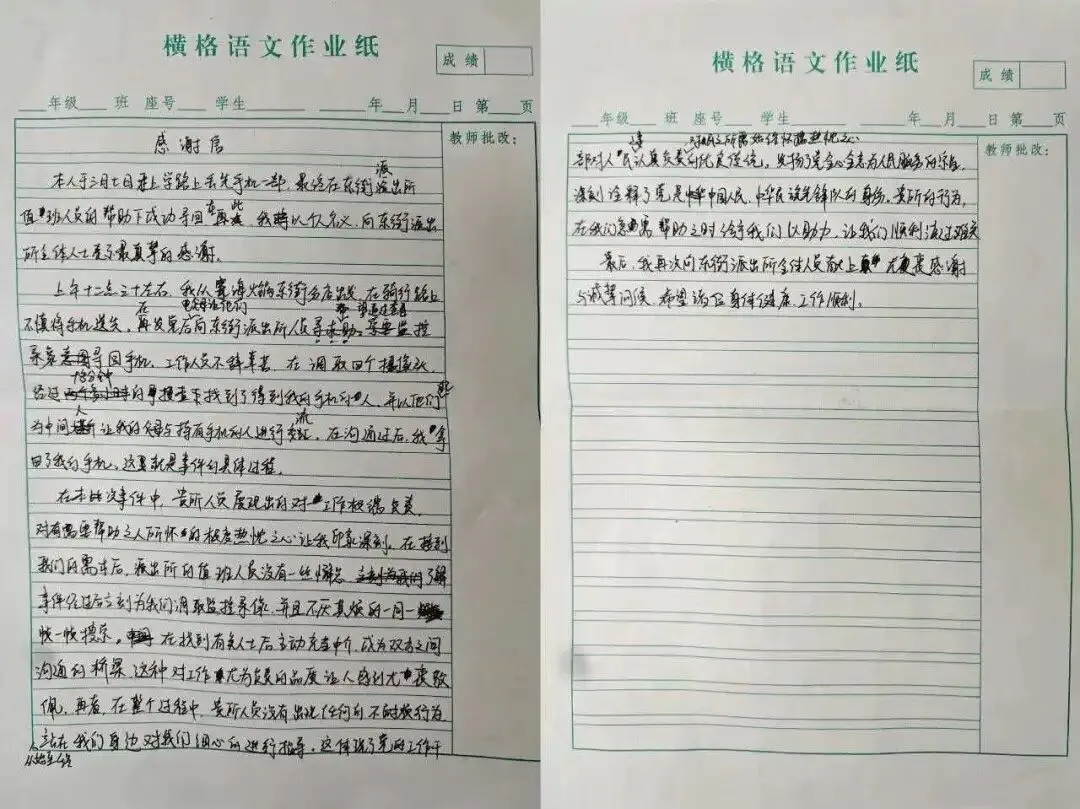 横格语文作业纸
成绩
年级 班 座号 学生 年 月 日 第 页
教师批改：
感谢信
本人于三月七日早上学路上丢失手机一部，最终在东街派出所
值班人员的帮助下成功寻回，在此我将以个人名义，向东街派出
所全体人士致以最真挚的感谢。
上午十二点三十左右，我从 海火锅东街分店出发，在骑行路上
不慎将手机遗失，在发觉后向东街派出所人员寻求帮助，
录像寻回手机，工作人员不辞辛苦，在调取四个摄像头，
经过 十分钟的搜查下找到了得到我的手机的人，并以他们
为中间人让我的父母与持有手机的人进行交流，在沟通过后，我拿
回了我的手机，这就是事件的具体过程。
在本次事件中，贵所人员展现出的对工作极端负责，
对有需要帮助之人所怀的极度热忱之心让我印象深刻，在接到
我们的需求后，派出所的值班人员没有一丝懈怠 了解
事件经过后立刻为我们调取监控录像，并且不厌其烦的一同
帧一帧搜索。在找到有关人士后主动充当中介，成为双方之间
沟通的桥梁，这种对工作尤为负责的品质让人感到尤其敬
佩，再者，在整个过程中，贵所人员没有出现任何的不耐烦行为
从始至终站在我们的身边对我们细心的进行指导。这体现了党的工作干
横格语文作业纸
成绩
年级 班 座号 学生 年 月 日 第 页
教师批改：
部对人民认真负责的优良传统，发扬了党全心全意为人民服务的宗旨，
深刻诠释了党是中国人民，中华民族先锋队的身份。贵所的行为，
在我们急需帮助之时给予我们以助力，让我们顺利渡过难关
最后，我再次向东街派出所全体人员献上 感谢
与诚挚问候，希望诸位身体健康，工作顺利。